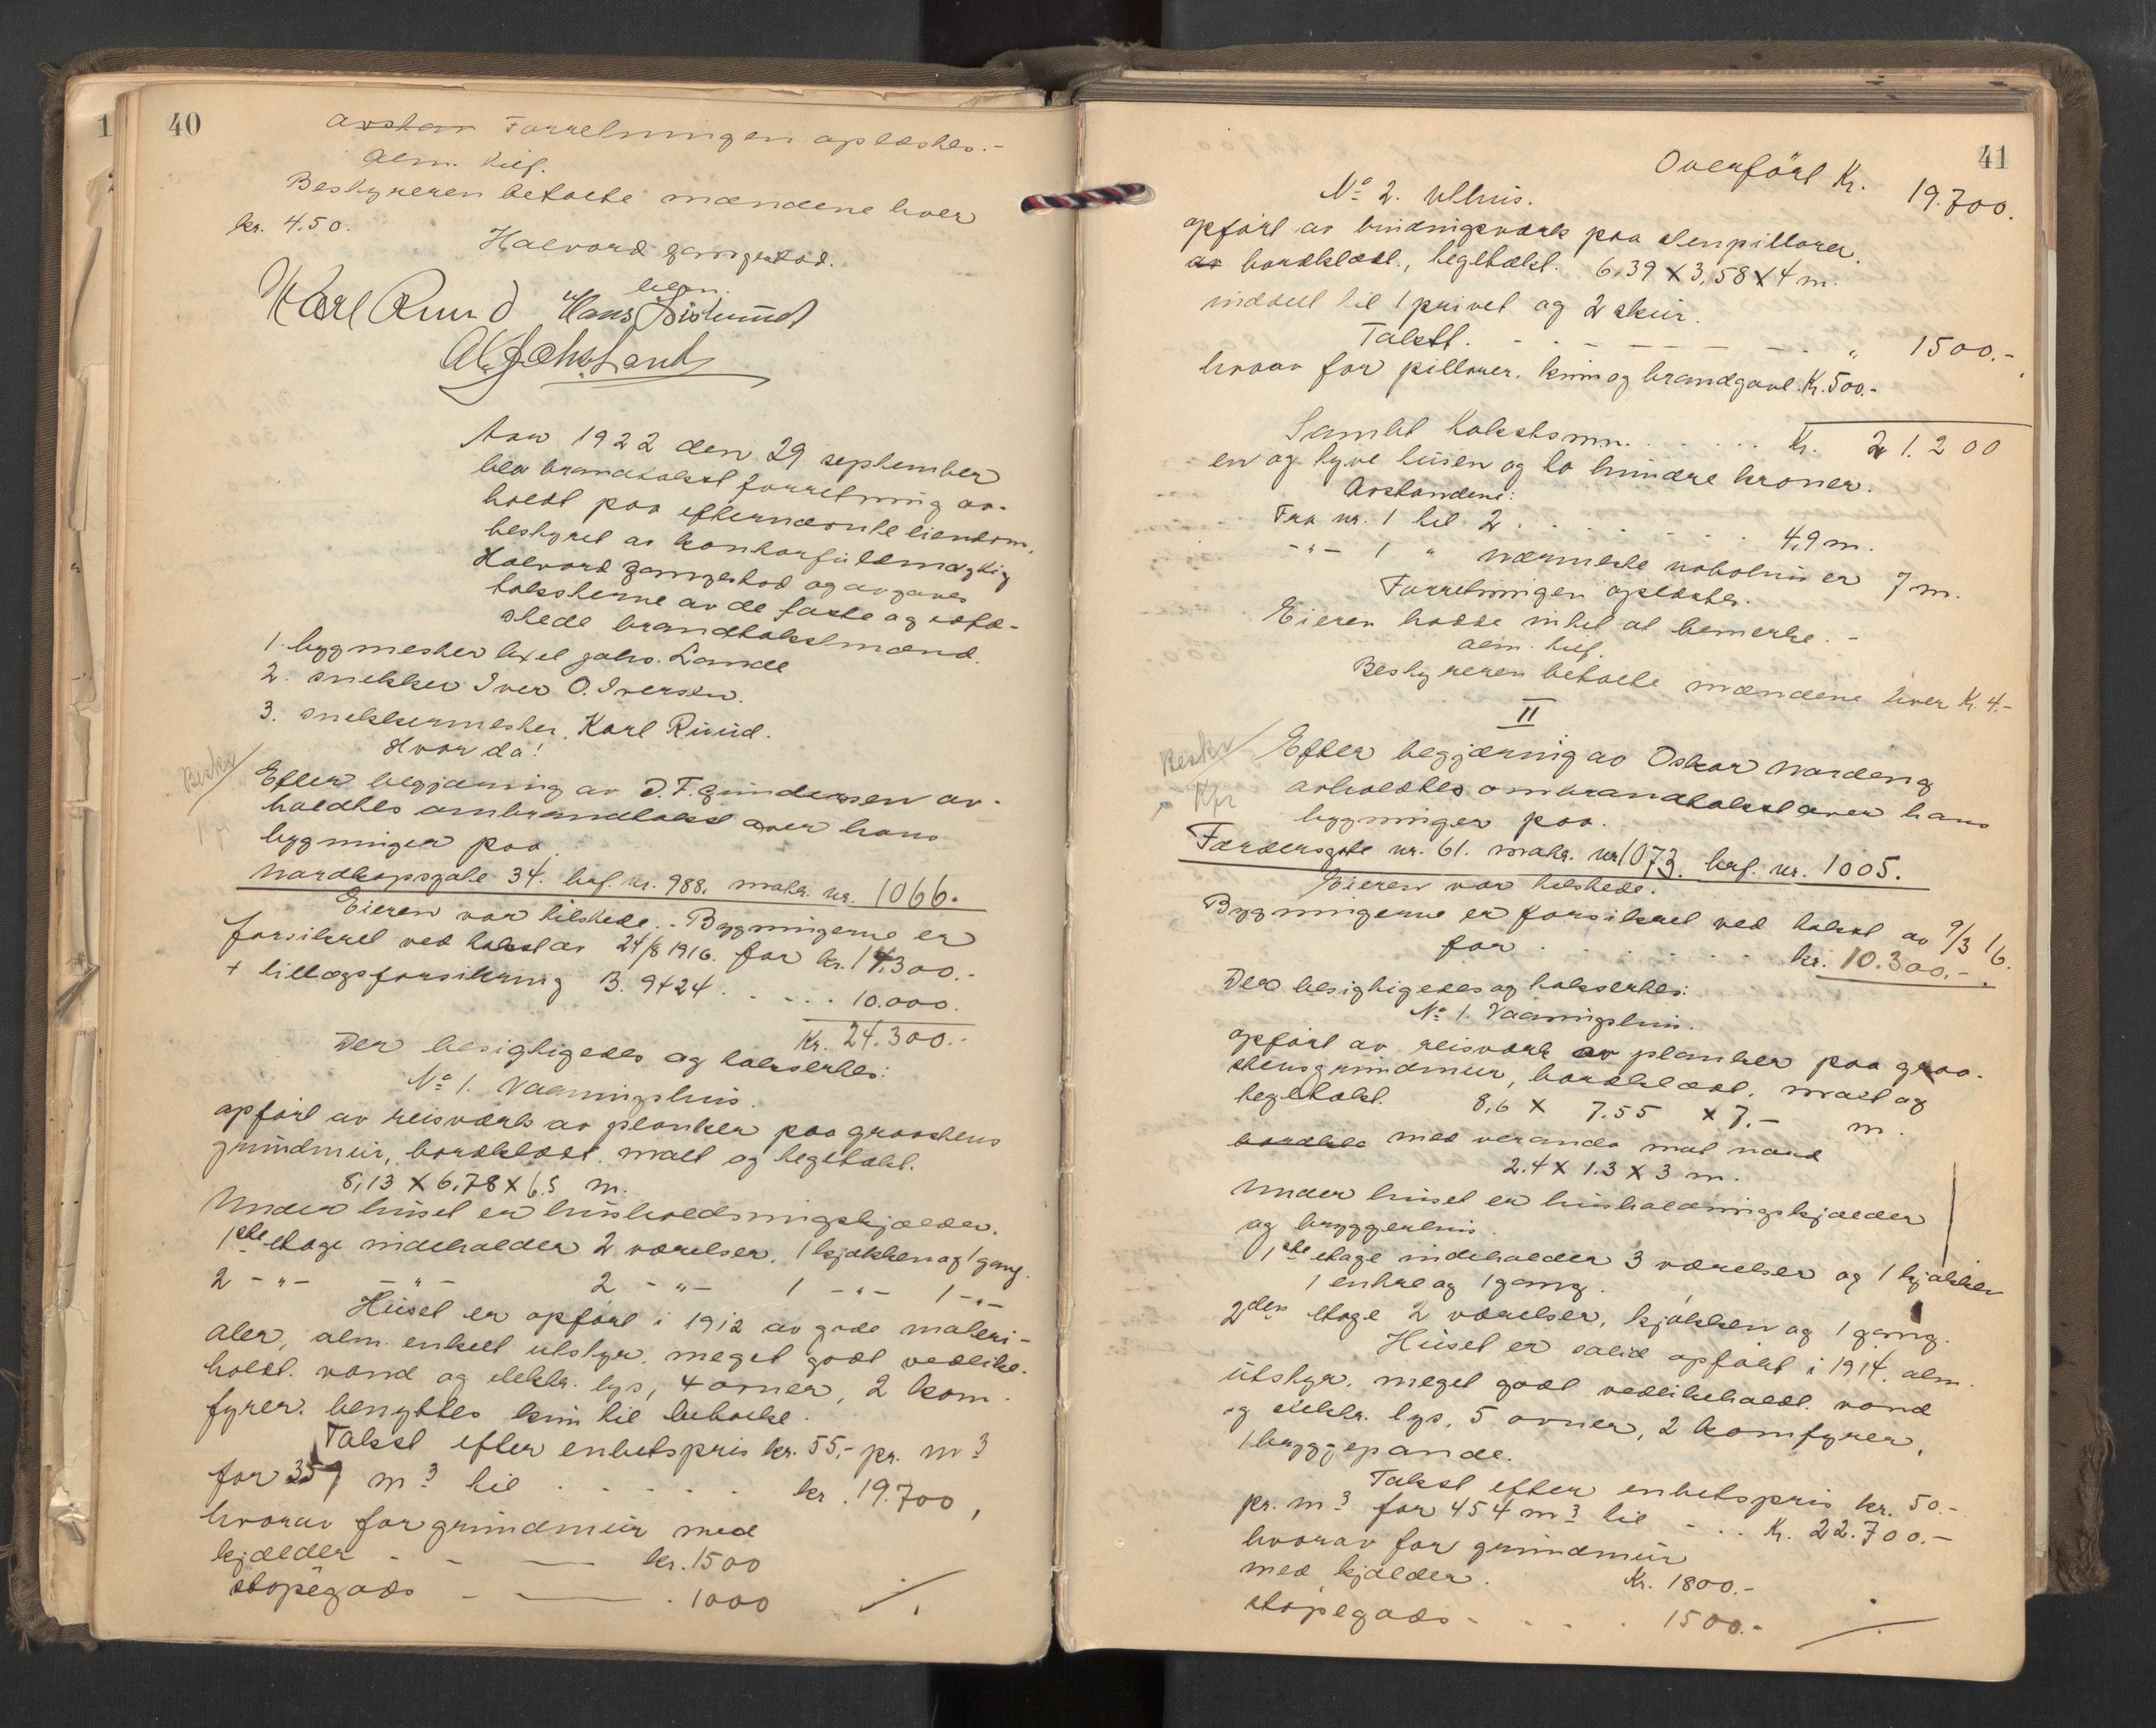 40
Forretningen oplæstes.-
Alm. kief.
Bestyreren betalte mændene hver
kr. 4.50.
Halvord Gamgestad.
Karl Ruud Hans
Aar 1922 den 29 september
blev brandtakst forretning av-
holdt paa efternævnte eiendom,
bestyret av kontorfuldmægtig
Halvord Gamgestad og avgaves
taksterne av de faste og edfæ-
stede brandtakstmænd.
1. bygmester Axel Johs. Lande
2. snekker Iver O. Iversen.
3. snekkermester Karl Ruud.
Hvor da!
Beskr
Efter begjæring av D. F. Gundersen av-
holdtes ombrandtakst over hans
Kpr
bygninger paa
Nordkapsgate 34. brf. nr. 988, matr. nr. 1066.
Eieren var tilstede. - Bygningerne er
forsikret ved takst av 24/8 1916. for kr. 14.300.-
+ tillægsforsikring B. 9424 . . - . . 10.000.
Kr. 24.300.-
Der besigtigedes og taksertes:
No 1. Vaaningshus.
opført av reisverk av planker paa graastens
grundmur, bordklædt. malt og tegltækt.
8,13 X 6,78 X 6.5 m.
Under huset er husholdningskjælder.
1ste etage indeholder 2 værelser, 1 kjøkken og 1 gang.
2 -"- -"- 2 -"- 1 -"- 1 -"-
Huset er opført i 1912 av gode materi-
aler, alm. enkelt utstyr. meget godt vedlike-
holdt. vand og elektr. lys, 4 ovner, 2 kom-
fyrer. benyttes kun til beboelse.
Takst efter enhetspris kr. 55,- pr. m3
for 359 m3 til . . . . . kr. 19.700,
hvorav for grundmur med
kjælder - - —— kr. 1500
støpegods - —— . 1000 ./.
41
Overført Kr. 19.700.
No 2. Uthus.
opført av bindingsværk paa stenpillarer.
av bordklædt., tegltækt. 6,39 X 3,58 X 4 m.
inddelt til 1 privet og 2 skur.
Takst. - - - - - - " 1500.-
hvorav for pillarer. kun og brandgavl. Kr. 500.-
Samlet takstsum. . . . . . Kr. 21.200
en og tyve tusen og to hundre kroner.
Avstandene:
Fra nr. 1 til 2 . . . . . . 4,9 m.
-"- 1 " nærmeste nabohus er 7 m.
Forretningen oplæstes.
Eieren hadde intet at bemerke. -
Alm. kief.
Bestyreren betalte mændene hver Kr. 4.-
II
Beskr
Efter begjæring av Oskar Nardeng
Kpr
avholdtes ombrandtakst over hans
bygninger paa.
Færdersgate nr. 61. matr. nr 1073. brf. nr. 1005.
Eieren var tilstede.
Bygningerne er forsikret ved takst av 9/3 16.
for . . . . . . . kr. 10.300.-
Der besigtigedes og taksertes:
No 1. Vaaningshus.
opført av reisværk av planker paa graa-
stensgrundmur, bordklædt, malt og
tegltækt. 8,6 X 7.55 X 7.- m.
bordklæ med veranda mot nord
2.4 X 1.3 X 3 m.
Under huset er husholdningskjælder
og bryggerhus.
1ste etage indeholder 3 værelser og 1 kjøkken
1 entre og 1 gang.
2den etage 2 værelser, kjøkken og 1 gang.
Huset er solid opført i 1914. alm.
utstyr. meget godt vedlikeholdt. vand
og elektr. lys, 5 ovner, 2 komfyrer,
1 bryggepande.
Takst efter enhetspris kr. 50.-
pr. m3 for 454 m3 til - . . Kr. 22.700.-
hvorav for grundmur
med kjælder. Kr. 1800.-
støpegods - - . . 1500.- ./.